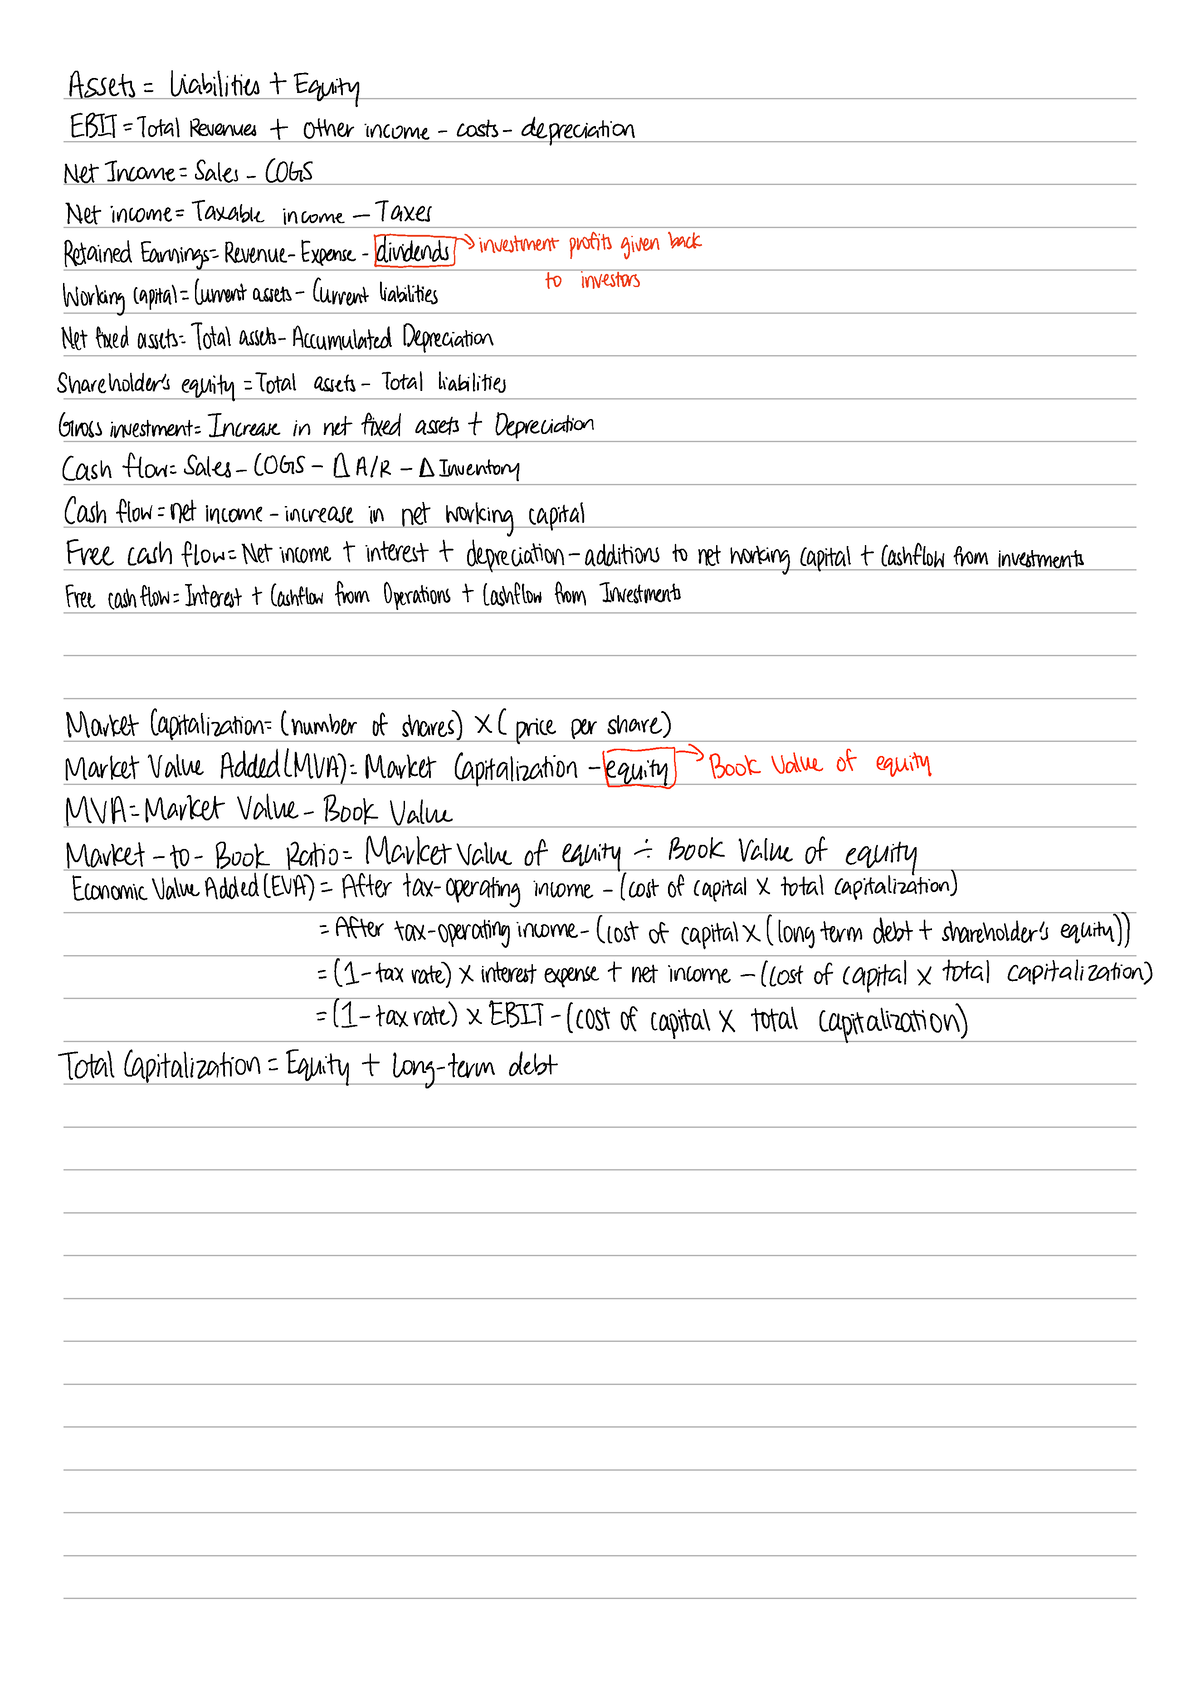 Assets = Liabilities + Equity
EBIT = Total Revenues + other income - costs - depreciation
Net Income = Sales - COGS
Net income = Taxable income - Taxes
Retained Earnings = Revenue - Expense - dividends → investment profits given back
to investors
Working Capital = Current assets - Current liabilities
Net fixed assets = Total assets - Accumulated Depreciation
Shareholder's equity = Total assets - Total liabilities
Gross investment = Increase in net fixed assets + Depreciation
Cash flow = Sales - COGS - Δ A/R - Δ Inventory
Cash flow = net income - increase in net working capital
Free cash flow = Net income + interest + depreciation - additions to net working capital + Cashflow from investments
Free cash flow = Interest + Cashflow from Operations + Cashflow from Investments
Market Capitalization = (number of shares) × (price per share)
Market Value Added (MVA) = Market Capitalization - equity → Book Value of equity
MVA = Market Value - Book Value
Market-to-Book Ratio = Market Value of equity ÷ Book Value of equity
Economic Value Added (EVA) = After tax-operating income - (cost of capital × total capitalization)
= After tax-operating income - (cost of capital × (long term debt + shareholder's equity))
= (1 - tax rate) × interest expense + net income - (cost of capital × total capitalization)
= (1 - tax rate) × EBIT - (cost of capital × total capitalization)
Total Capitalization = Equity + long-term debt